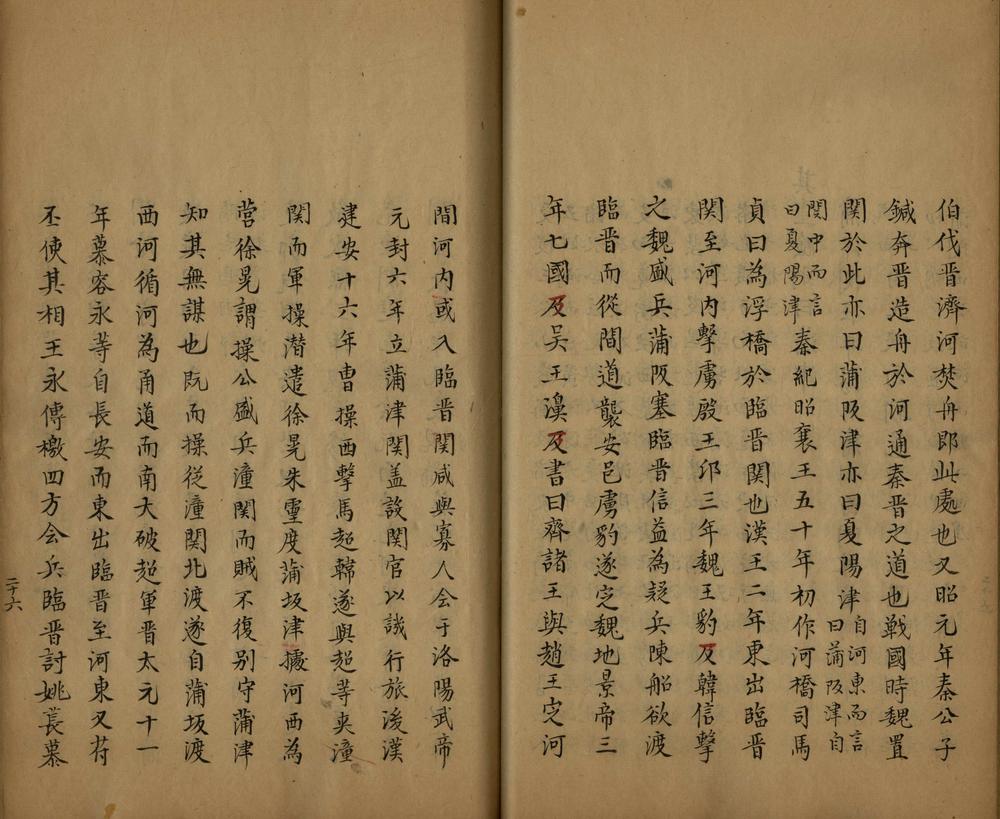 伯伐晋濟河焚舟即此處也又昭元年秦公子
鍼奔晋造舟於河通秦晋之道也戦國時魏置
関於此亦曰蒲阪津亦曰夏陽津自河東而言
曰蒲阪津自
関中而言
曰夏陽津秦紀昭襄王五十年初作河橋司馬
貞曰為浮橋於臨晋関也漢王二年東出臨晋
関至河内擊虜殷王卬三年魏王豹反韓信擊
之魏盛兵蒲阪塞臨晋信益為疑兵陳船欲渡
臨晋而從間道襲安邑虜豹遂定魏地景帝三
年七國反吴王濞反書曰齊諸王與趙王定河
間河内或入臨晋関或與寡人会于洛陽武帝
元封六年立蒲津関盖設関官以譏行旅後漢
建安十六年曹操西擊馬超韓遂與超等夾潼
関而軍操潜遣徐晃朱靈度蒲坂津據河西為
営徐晃謂操公盛兵潼関而賊不復别守蒲津
知其無謀也既而操從潼関北渡遂自蒲坂渡
西河循河為甬道而南大破超軍晋太元十一
年慕容永等自長安而東出臨晋至河東又苻
丕使其相王永傳檄四方会兵臨晋討姚萇慕
二十六